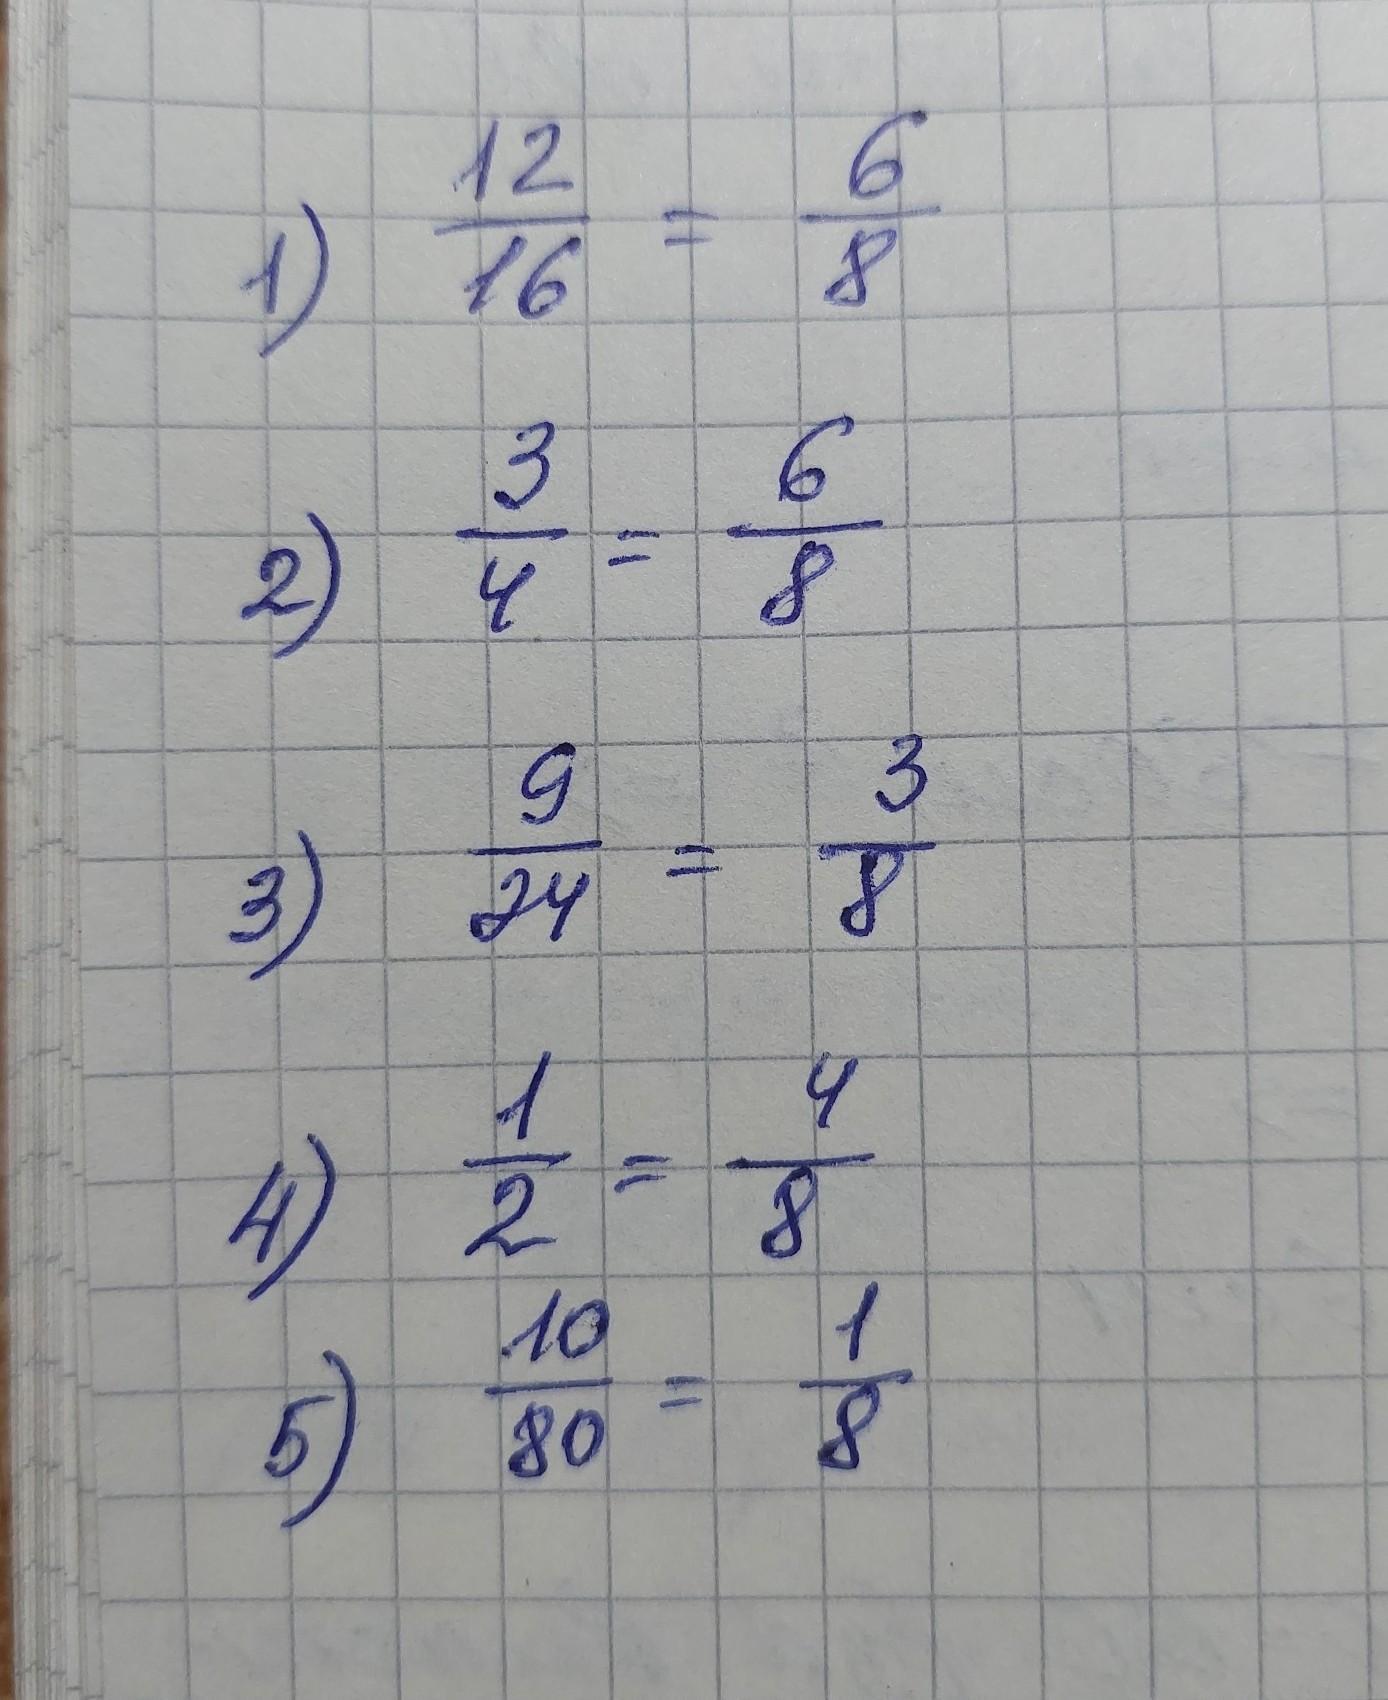 1) 12/16 = 6/8
2) 3/4 = 6/8
3) 9/24 = 3/8
4) 1/2 = 4/8
5) 10/80 = 1/8